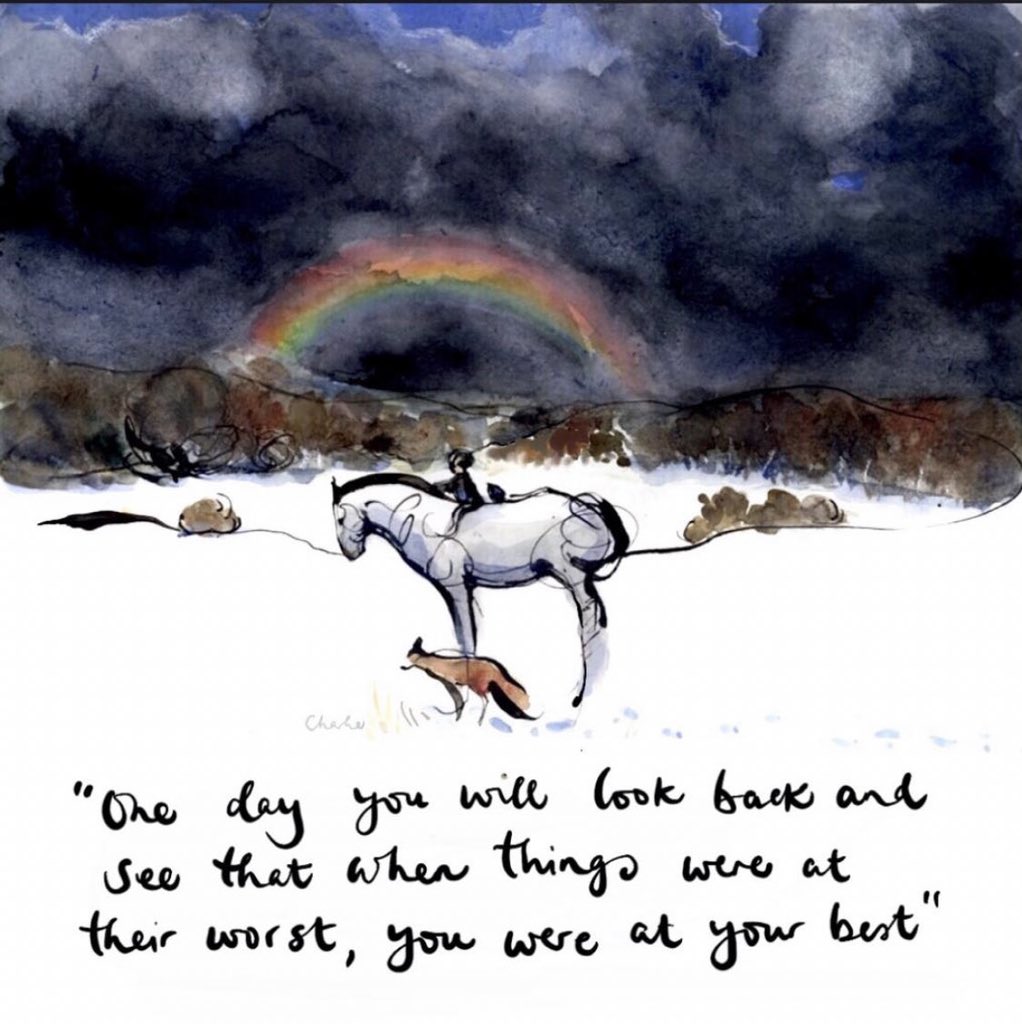 Charlie
"One day you will look back and
see that when things were at
their worst, you were at your best"